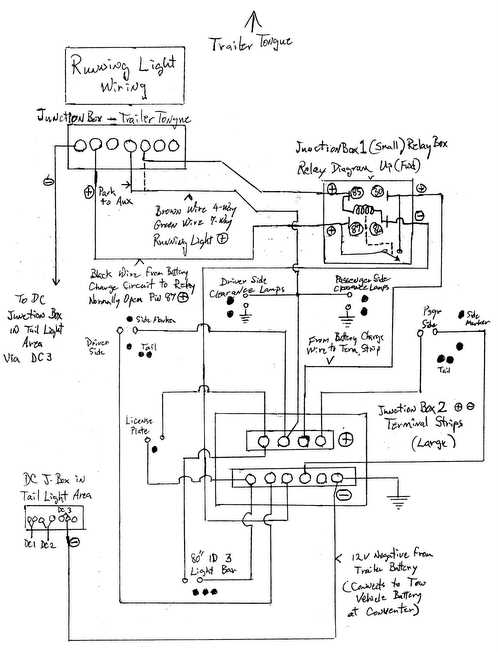 Trailer Tongue
Running Light
Wiring
Junction Box - Trailer Tongue
Junction Box 1 (Small) Relay Box
Relay Diagram Up (Fwd)
⊖
⊕
Park
to Aux
Brown Wire 4-Way
Green Wire 7-Way
Running Light ⊕
⊕ 85
⊕ 87
⊕
⊖
Black Wire From Battery
Charge Circuit to Relay
Normally Open Pin 87 ⊕
To DC
Junction Box
in Tail Light
Area
Via DC3
Driver Side
Clearance Lamps
Passenger Side
Clearance Lamps
Side Marker
Driver
Side
Tail
From Battery Charge
Wire to Term. Strip
Psgr
Side
Side
Marker
Tail
Junction Box 2 ⊕ ⊖
Terminal Strips
(Large)
License
Plate
⊕
⊖
DC J-Box in
Tail Light Area
DC3
DC1 DC2
⊖
80" ID 3
Light Bar
12V Negative From
Trailer Battery
(Connects to Tow
Vehicle Battery
at Converter)